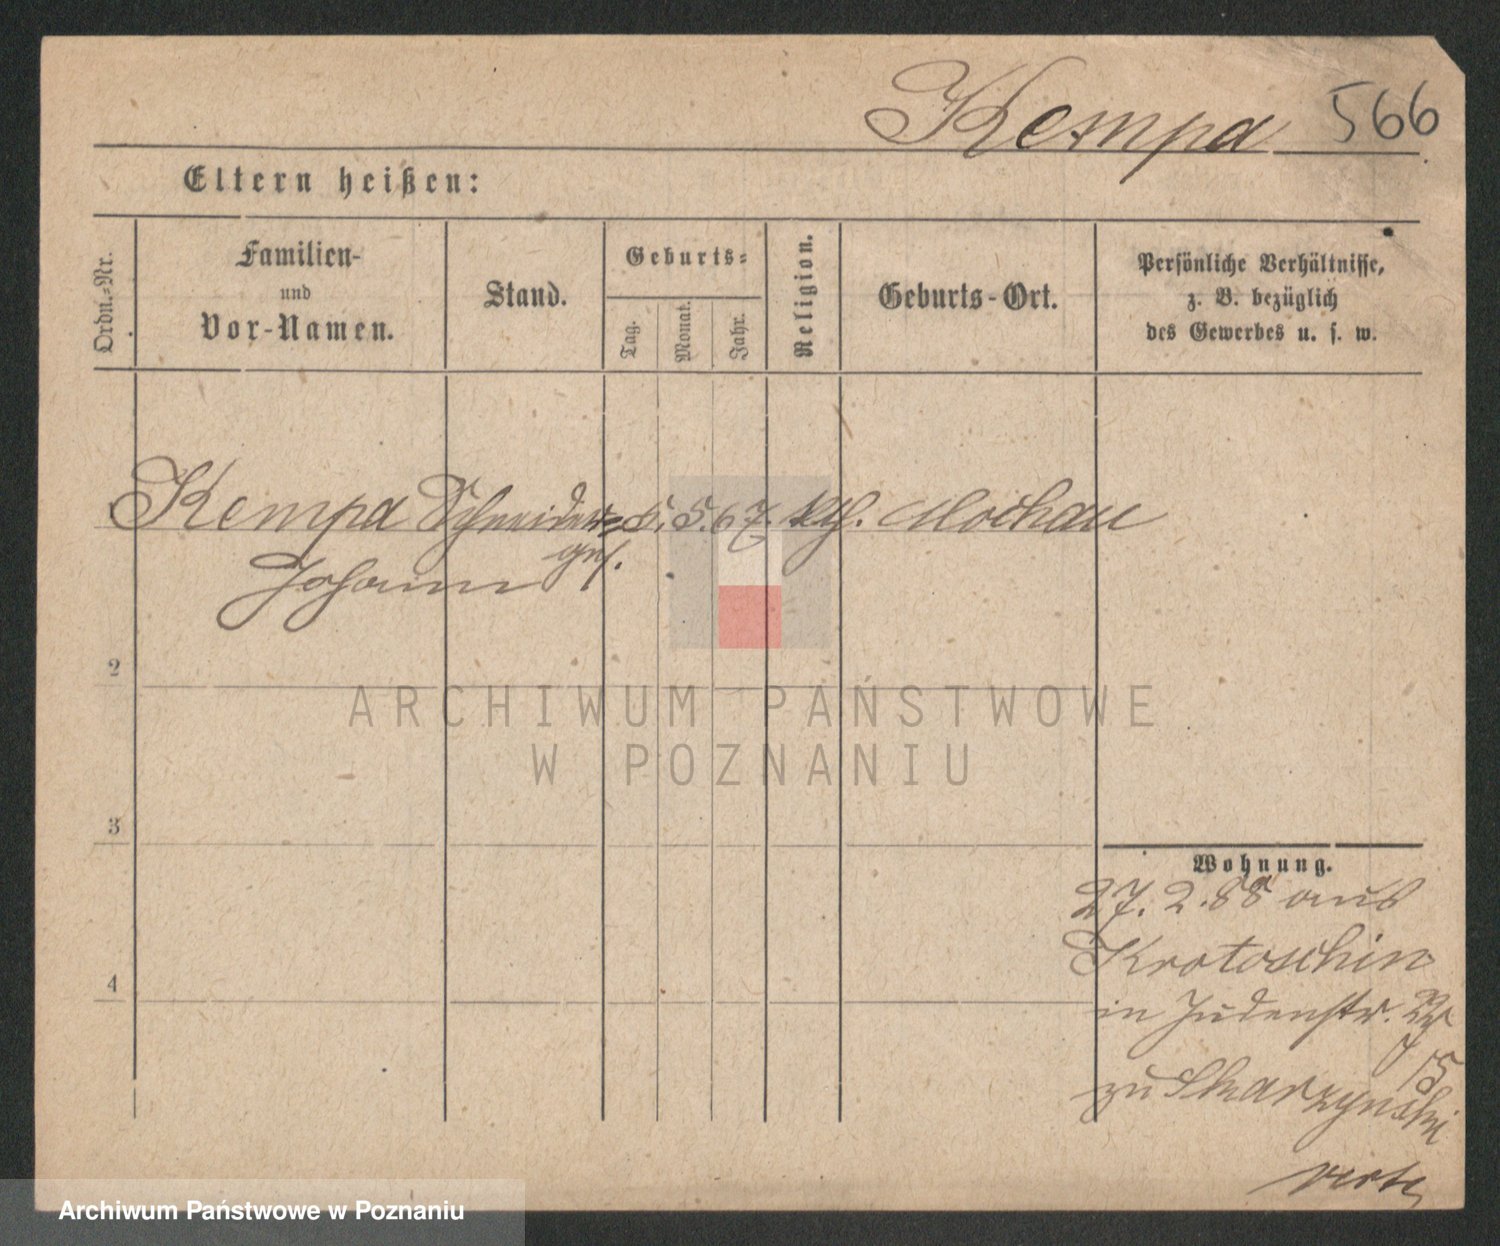 Kempa 566
Eltern heißen:
Ordn.-Nr.
Familien-
und
Vor-Namen.
Stand.
Geburts-
Tag.
Monat.
Jahr.
Religion.
Geburts-Ort.
Persönliche Verhältnisse,
z. B. bezüglich
des Gewerbes u. s. w.
Kempa Schneider- 5. 5. 67. kth. Mochau
Johann ges.
2
3
4
Wohnung.
27. 2. 88 aus
Krotoschin
in Judenstr.
15
zu Skarzynski
verte
ARCHIWUM PAŃSTWOWE
W POZNANIU
Archiwum Państwowe w Poznaniu